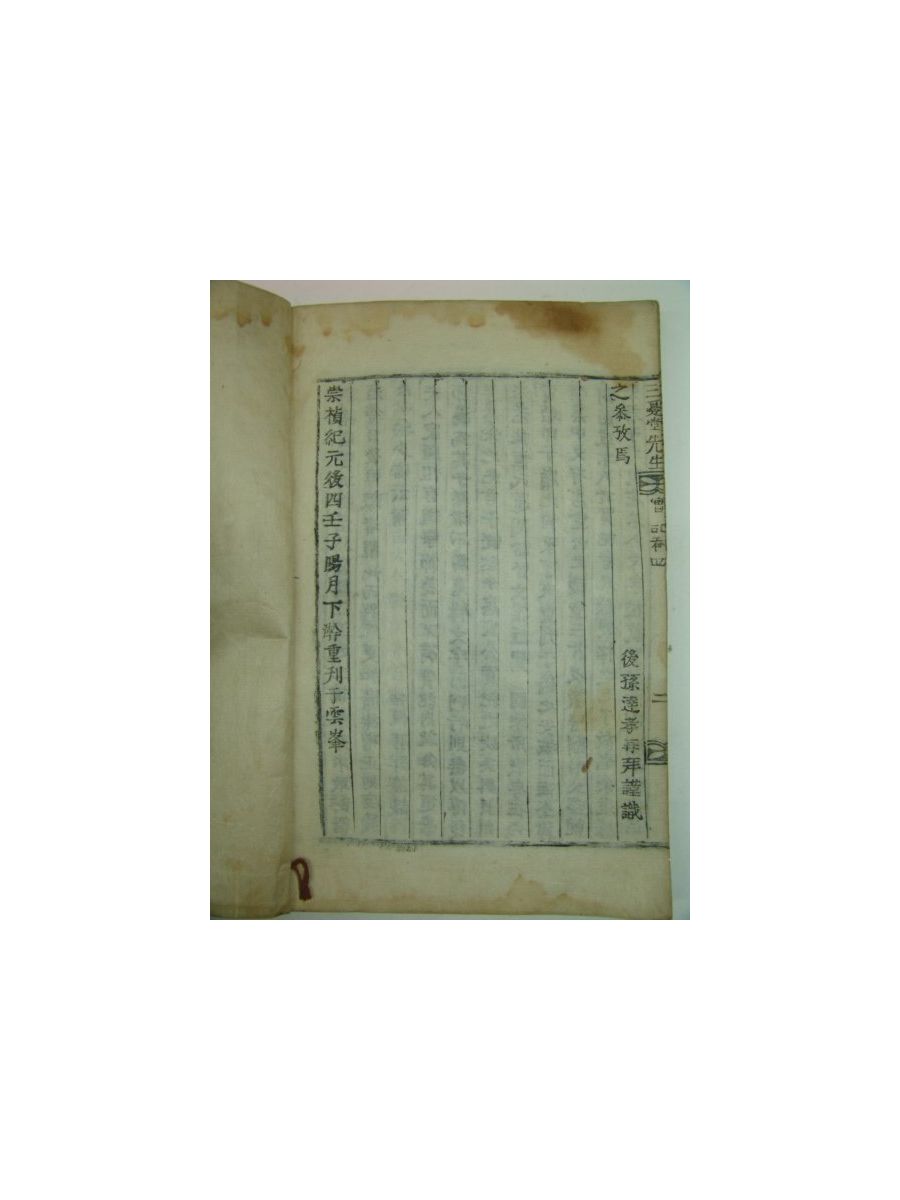 三憂堂先生
實記卷四
二
之叅攷焉
後孫達孝再拜謹識
崇禎紀元後四壬子陽月下澣重刊于雲峯